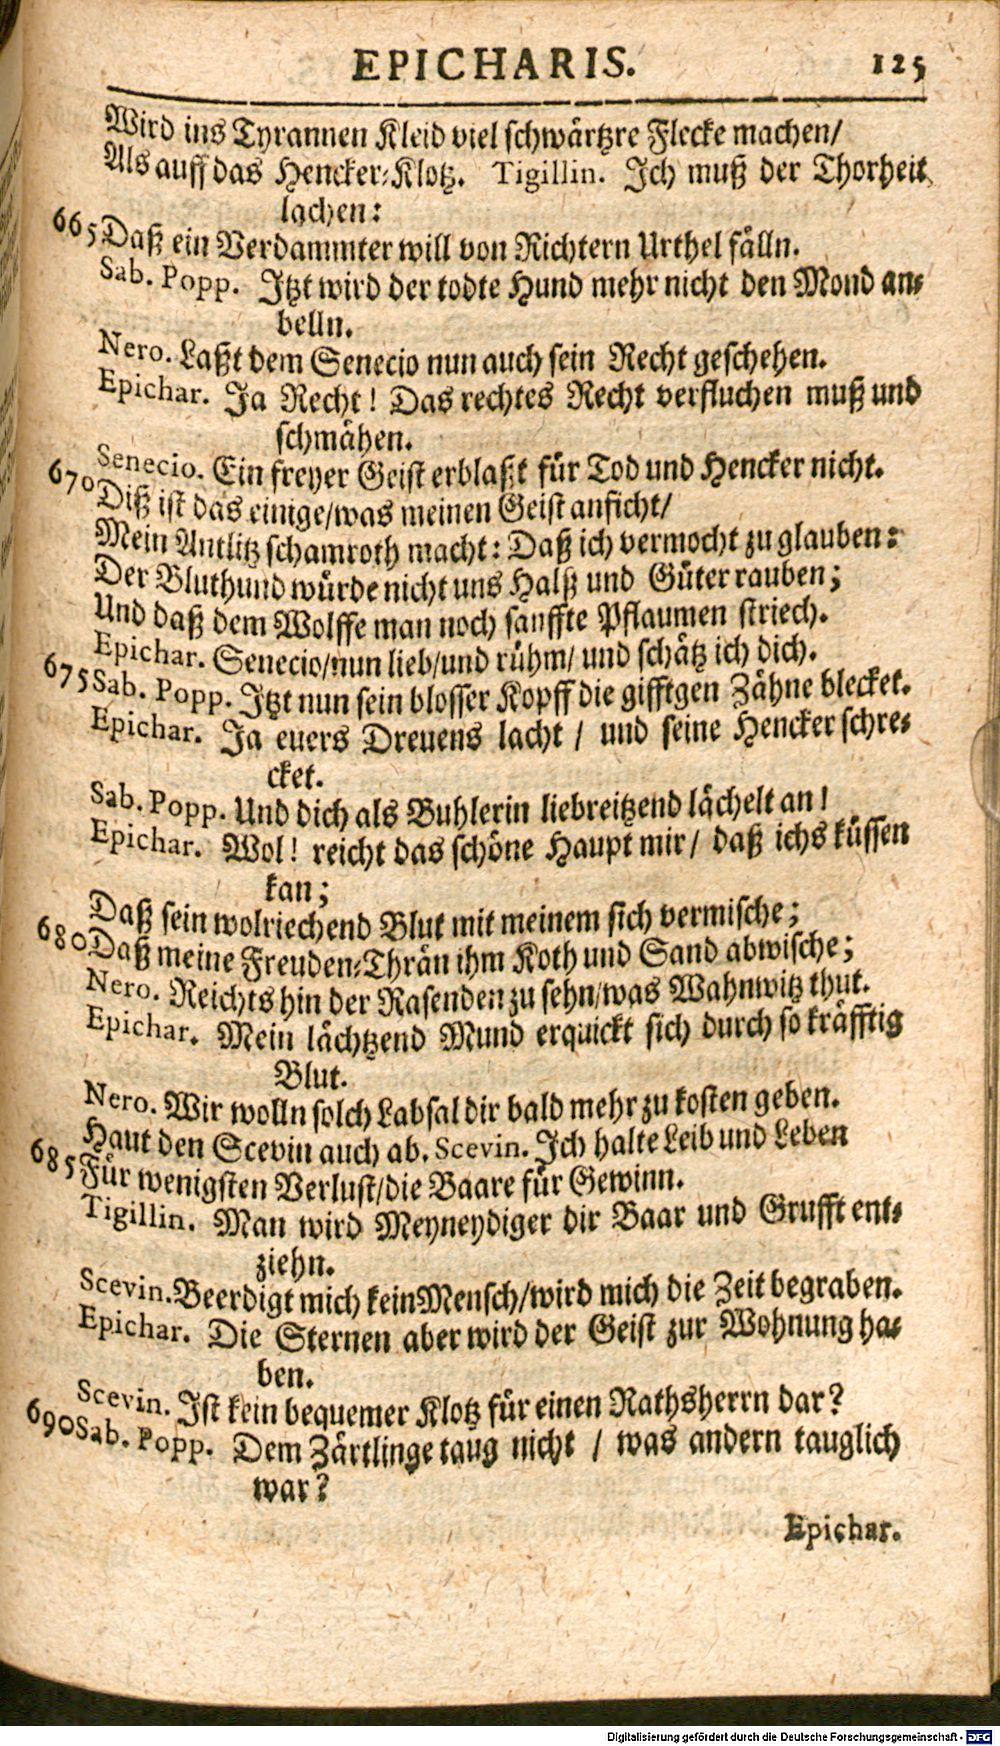 EPICHARIS. 125
Wird ins Tyrannen Kleid viel schwärtzre Flecke machen/
Als auff das Hencker-Klotz. Tigillin. Ich muß der Thorheit
lachen:
665 Daß ein Verdammter will von Richtern Urthel fälln.
Sab. Popp. Itzt wird der todte Hund mehr nicht den Mond an-
belln.
Nero. Laßt dem Senecio nun auch sein Recht geschehen.
Epichar. Ja Recht! Das rechtes Recht verfluchen muß und
schmähen.
Senecio. Ein freyer Geist erblaßt für Tod und Hencker nicht.
670 Diß ist das einige/was meinen Geist anficht/
Mein Antlitz schamroth macht: Daß ich vermocht zu glauben:
Der Bluthund würde nicht uns Halß und Güter rauben;
Und daß dem Wolffe man noch sanffte Pflaumen striech.
Epichar. Senecio/nun lieb/und rühm/und schätz ich dich.
675 Sab. Popp. Itzt nun sein blosser Kopff die gifftgen Zähne blecket.
Epichar. Ja euers Dreuens lacht / und seine Hencker schre-
cket.
Sab. Popp. Und dich als Buhlerin liebreitzend lächelt an!
Epichar. Wol! reicht das schöne Haupt mir/ daß ichs küssen
kan;
Daß sein wolriechend Blut mit meinem sich vermische;
680 Daß meine Freuden-Thrän ihm Koth und Sand abwische;
Nero. Reichts hin der Rasenden zu sehn/was Wahnwitz thut.
Epichar. Mein lächtzend Mund erquickt sich durch so kräfftig
Blut.
Nero. Wir wolln solch Labsal dir bald mehr zu kosten geben.
Haut den Scevin auch ab. Scevin. Ich halte Leib und Leben
685 Für wenigsten Verlust/die Baare für Gewinn.
Tigillin. Man wird Meyneydiger dir Baar und Grufft ent-
ziehn.
Scevin. Beerdigt mich kein Mensch/wird mich die Zeit begraben.
Epichar. Die Sternen aber wird der Geist zur Wohnung ha-
ben.
Scevin. Ist kein bequemer Klotz für einen Rathsherrn dar?
690 Sab. Popp. Dem Zärtlinge taug nicht / was andern tauglich
war?
Epichar.
Digitalisierung gefördert durch die Deutsche Forschungsgemeinschaft - DFG